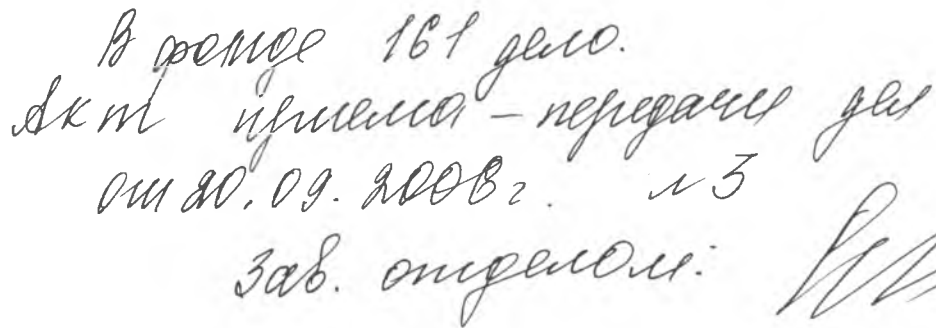 В фонде 161 дело.
Акт приема – передачи дел
от 20.09.2008 г. № 3
Зав. отделом: